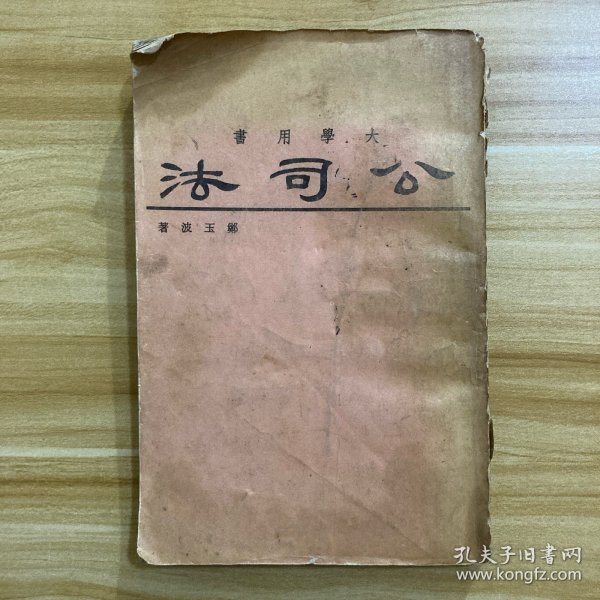 大學用書
公司法
鄭玉波著
孔夫子旧書网
www.kongfz.com